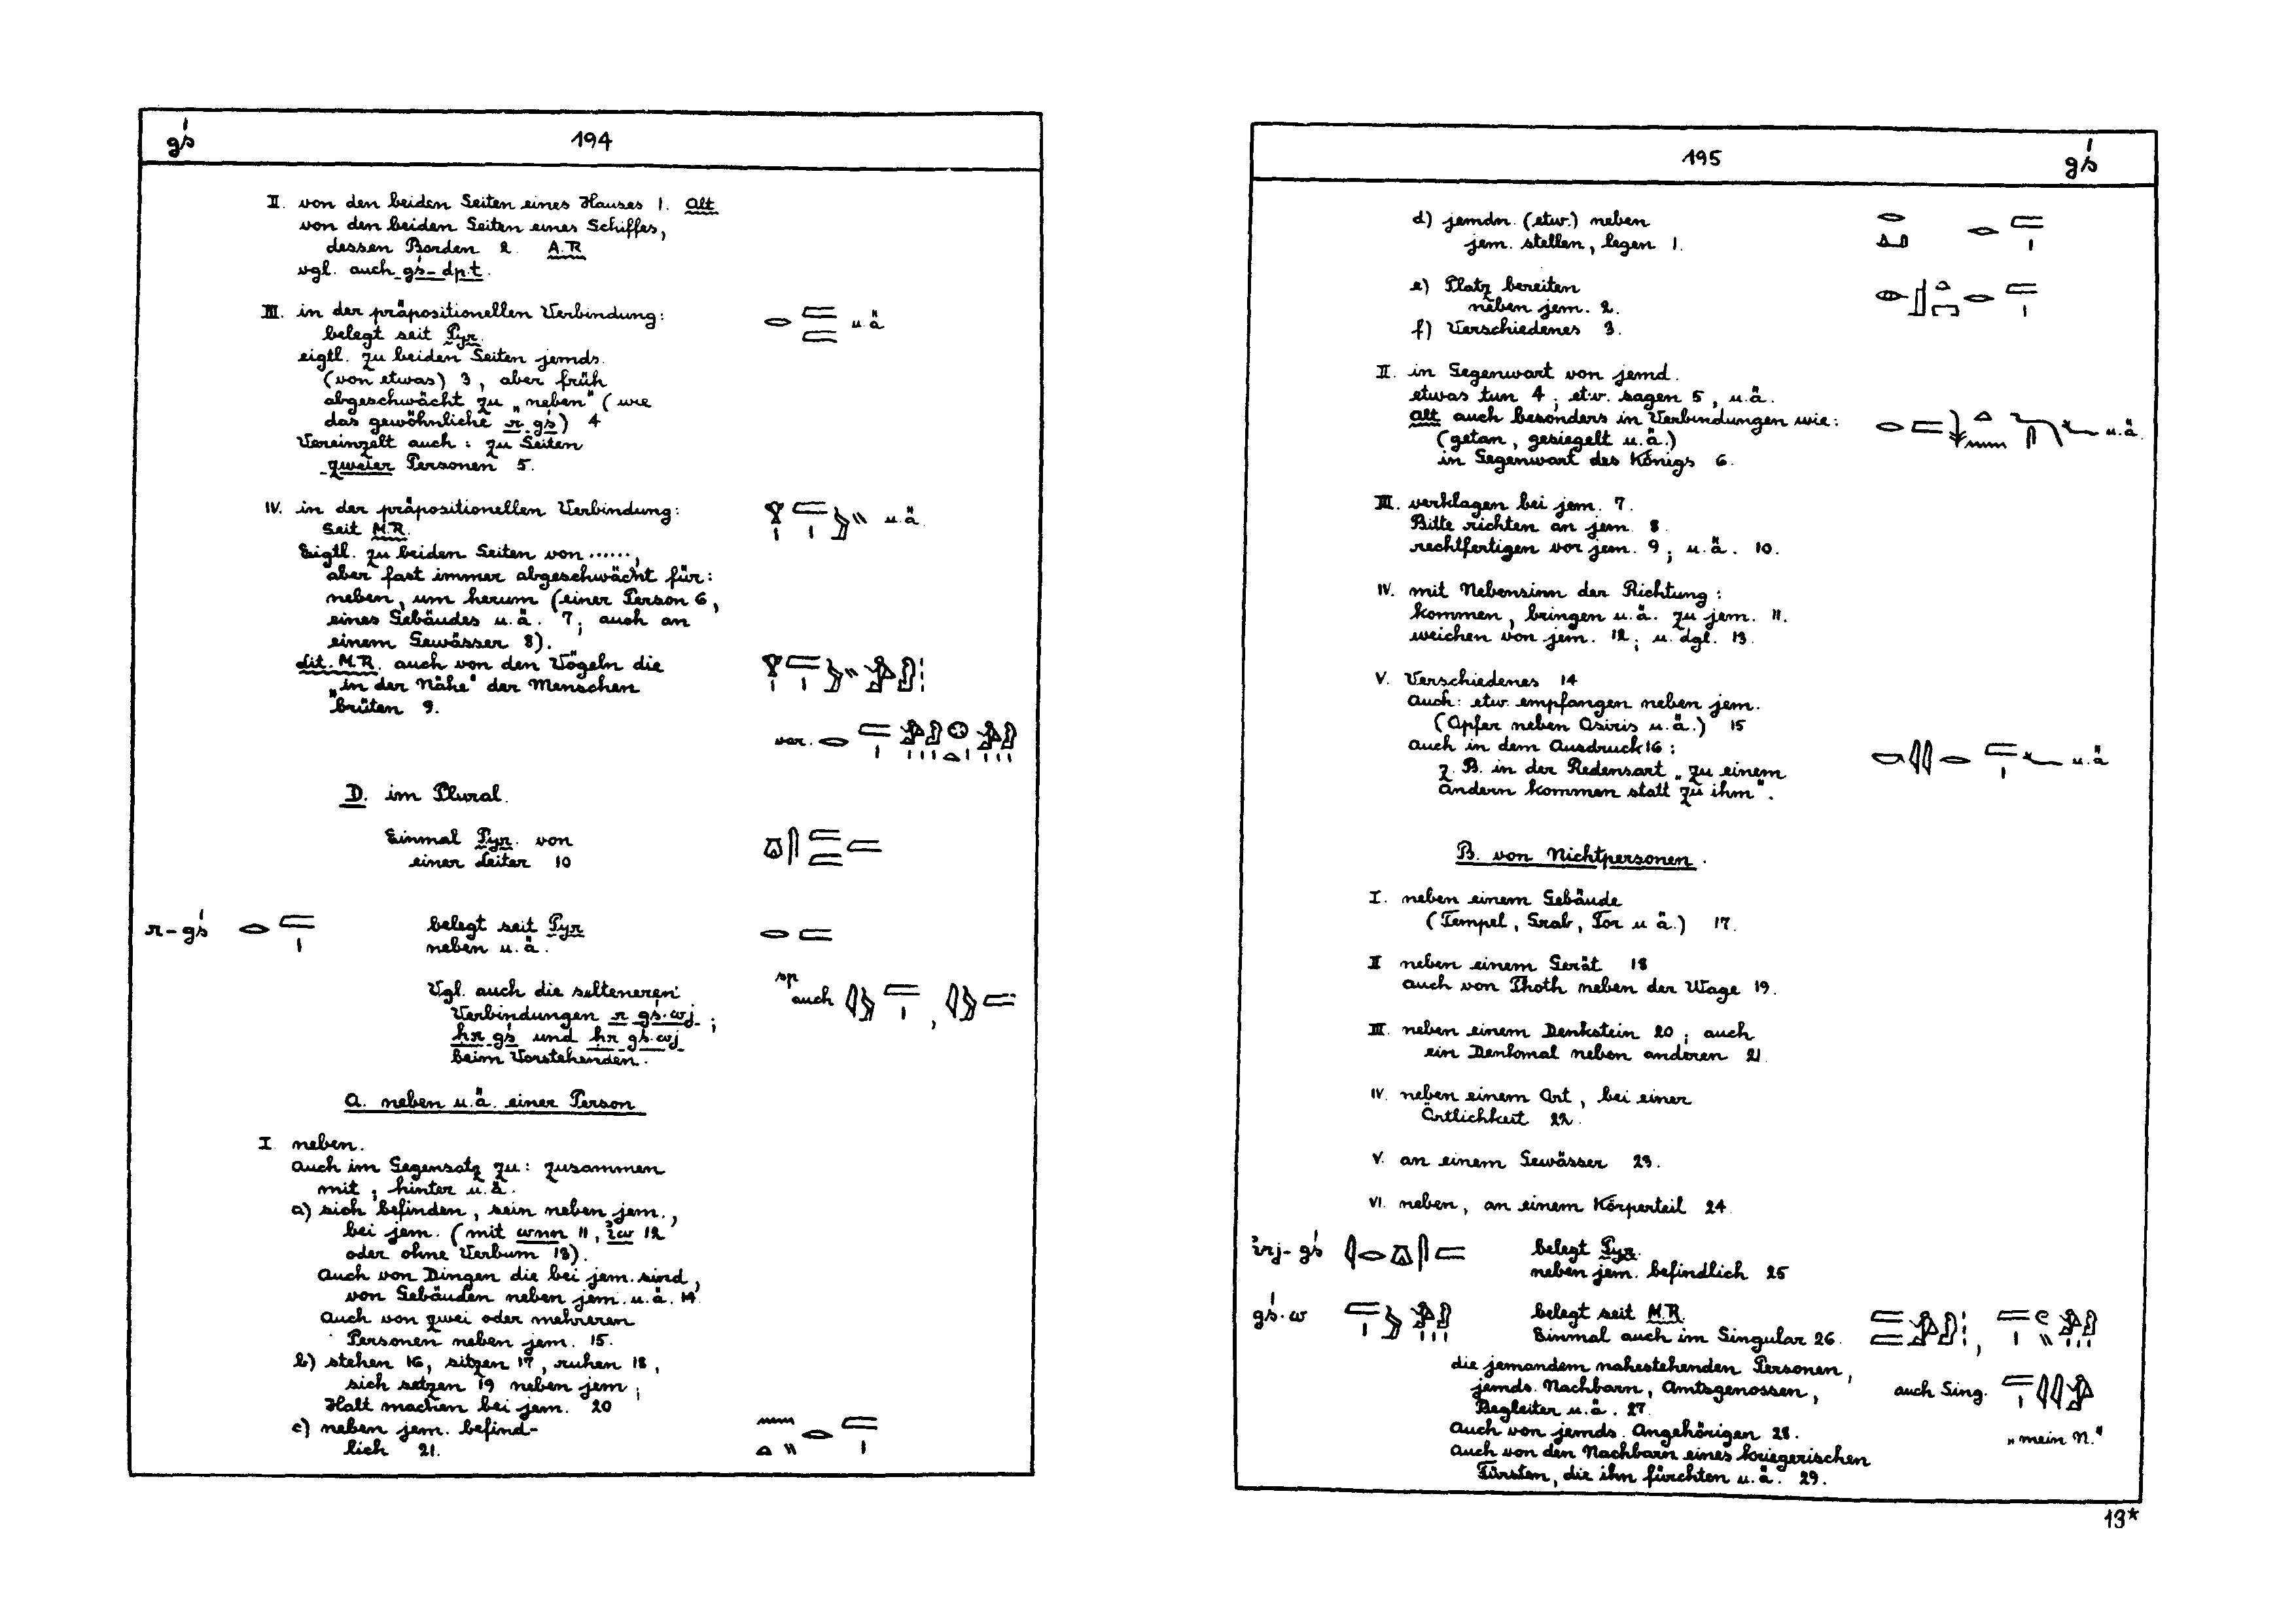 gś 194
II. von den beiden Seiten eines Hauses 1. Alt
von den beiden Seiten eines Schiffes,
dessen Borden 2. A.R.
vgl. auch gś-dp.t.
III. in der präpositionellen Verbindung: u.ä.
belegt seit Pyr.
eigtl. zu beiden Seiten jemds.
(von etwas) 3, aber früh
abgeschwächt zu „neben" (wie
das gewöhnliche r gś) 4
Vereinzelt auch: zu Seiten
zweier Personen 5.
IV. in der präpositionellen Verbindung: u.ä.
Seit M.R.
Eigtl. zu beiden Seiten von ......,
aber fast immer abgeschwächt für:
neben, um herum (einer Person 6,
eines Gebäudes u.ä. 7; auch an
einem Gewässer 8).
Lit. M.R. auch von den Vögeln die
„in der Nähe" der Menschen
brüten 9.
var.
D. im Plural.
Einmal Pyr. von
einer Leiter 10
r-gś belegt seit Pyr.
neben u.ä.
Vgl. auch die selteneren
Verbindungen r gś.wj;
ḥr gś und ḥr gś.wj
beim Vorstehenden.
sp.
auch ,
A. neben u.ä. einer Person
I neben.
Auch im Gegensatz zu: zusammen
mit; hinter u.ä.
a) sich befinden, sein neben jem.,
bei jem. (mit wnn 11, ἰw 12
oder ohne Verbum 13).
Auch von Dingen die bei jem. sind,
von Gebäuden neben jem. u.ä. 14
Auch von zwei oder mehreren
Personen neben jem. 15.
b) stehen 16, sitzen 17, ruhen 18,
sich setzen 19 neben jem;
Halt machen bei jem. 20
c) neben jem. befind-
lich 21.
195 gś
d) jemdn. (etw.) neben
jem. stellen, legen 1.
e) Platz bereiten
neben jem. 2.
f) Verschiedenes 3.
II. in Gegenwart von jemd.
etwas tun 4; etw. sagen 5, u.ä.
Alt auch besonders in Verbindungen wie: u.ä.
(getan, gesiegelt u.ä.)
in Gegenwart des Königs 6.
III. verklagen bei jem. 7.
Bitte richten an jem. 8.
rechtfertigen vor jem. 9; u.ä. 10.
IV. mit Nebensinn der Richtung:
kommen, bringen u.ä. zu jem. 11.
weichen von jem. 12; u. dgl. 13.
V. Verschiedenes 14
Auch: etw. empfangen neben jem.
(Opfer neben Osiris u.ä.) 15
auch in dem Ausdruck 16: u.ä.
z.B. in der Redensart „zu einem
andern kommen statt zu ihm".
B. von Nichtpersonen.
I. neben einem Gebäude
(Tempel, Grab, Tor u.ä.) 17.
II neben einem Gerät 18
auch von Thoth neben der Wage 19.
III. neben einem Denkstein 20; auch
ein Denkmal neben anderen 21.
IV. neben einem Ort, bei einer
Örtlichkeit 22.
V. an einem Gewässer 23.
VI. neben, an einem Körperteil 24.
ἰrj-gś belegt Pyr.
neben jem. befindlich 25
gś.w belegt seit M.R.
Einmal auch im Singular 26. ,
die jemandem nahestehenden Personen,
jemds. Nachbarn, Amtsgenossen, auch Sing.
Begleiter u.ä. 27.
Auch von jemds. Angehörigen 28. „mein N."
Auch von den Nachbarn eines kriegerischen
Fürsten, die ihn fürchten u.ä. 29.
13*